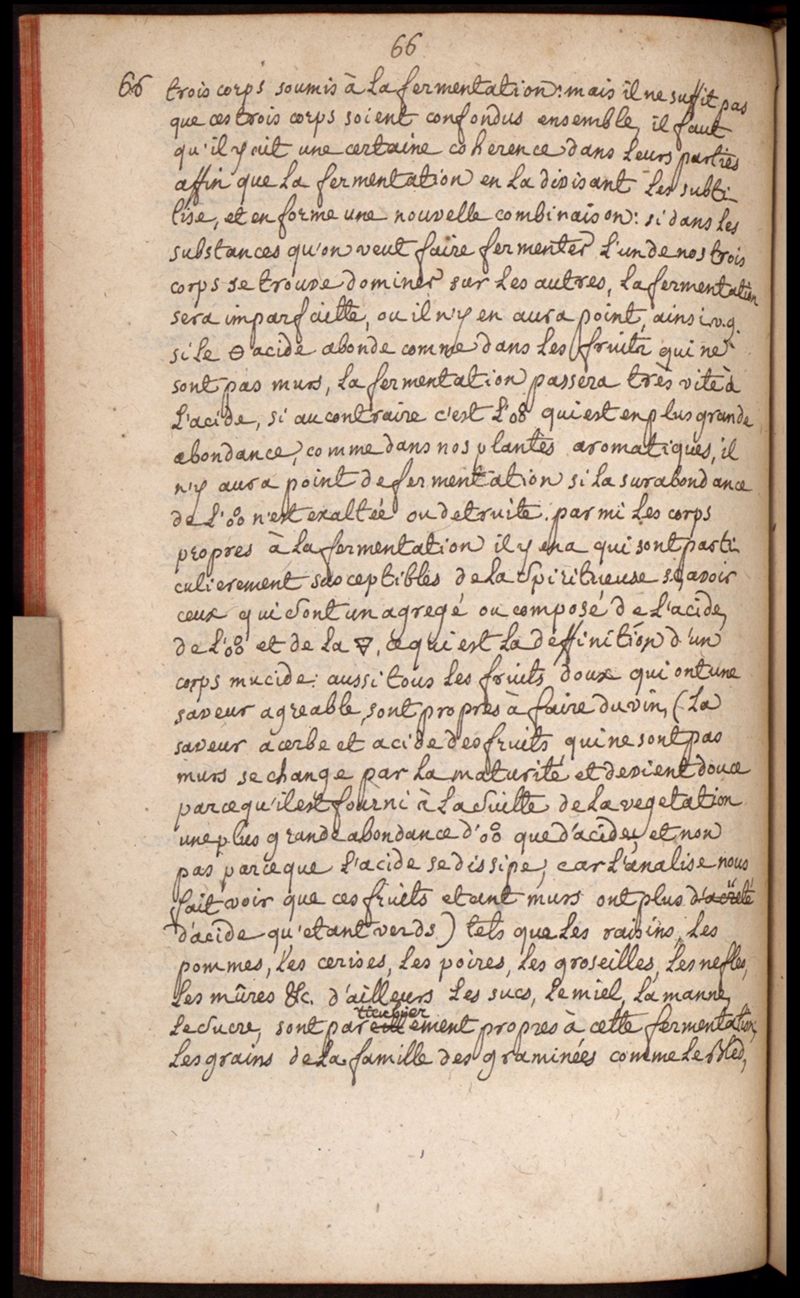 66
66 trois corps soumis à la fermentation: mais il ne suffit pas
que ces trois corps soient confondus ensemble, il faut
qu'il y ait une certaine coherence dans leurs parties
affin que la fermentation en la divisant les subti
lise, et en forme une nouvelle combinaison: si dans les
substances qu'on veut faire fermenter l'un de nos trois
corps se trouve dominer sur les autres, la fermentation
sera imparfaitte, ou il n'y en aura point, ainsi v.g.
si le ⊖ acide abonde comme dans les fruits qui ne
sont pas murs, la fermentation passera tres vite à
l'acide, si au contraire c'est l'o%o qui est en plus grande
abondance, comme dans nos plantes aromatiques, il
n'y aura point de fermentation si la surabondance
de l'o%o n'est exaltée ou detruite. parmi les corps
propres à la fermentation il y en a qui sont parti
culierement susceptibles de la spiritueuse sçavoir
ceux qui sont un agregé ou composé de l'acide,
de l'o%o et de la 🜃, ce qui est la deffinition d'un
corps mucide: aussi tous les fruits doux qui ont une
saveur agreable, sont propres à faire du vin, (la
saveur acerbe et acide des fruits qui ne sont pas
murs se change par la maturité et devient douce
parcequ'il est fourni à la suitte de la vegetation
une plus grande abondance d'o%o que d'acide, et non
pas parceque l'acide se dissipe, car l'analise nous
fait voir que ces fruits etant murs ont plus
d'acide qu'etant verds) tels que les raisins, les
pommes, les cerises, les poires, les groseilles, les nefles,
les mûres &c. d'ailleurs les sucs, le miel, la manne,
le sucre, sont pareillement propres à cette fermentation,
les grains de la famille des graminées comme le bled,